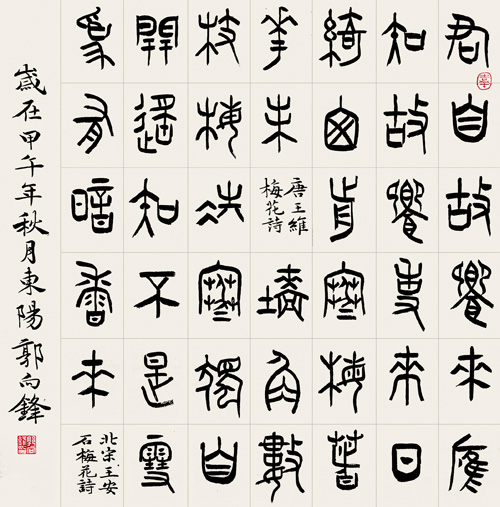 君自故鄉來應
知故鄉事來日
綺窗前寒梅著
花未
唐王維
梅花詩
牆角數
枝梅凌寒獨自
開遙知不是雪
為有暗香來
北宋王安
石梅花詩
歲在甲午年秋月東陽郭向鋒